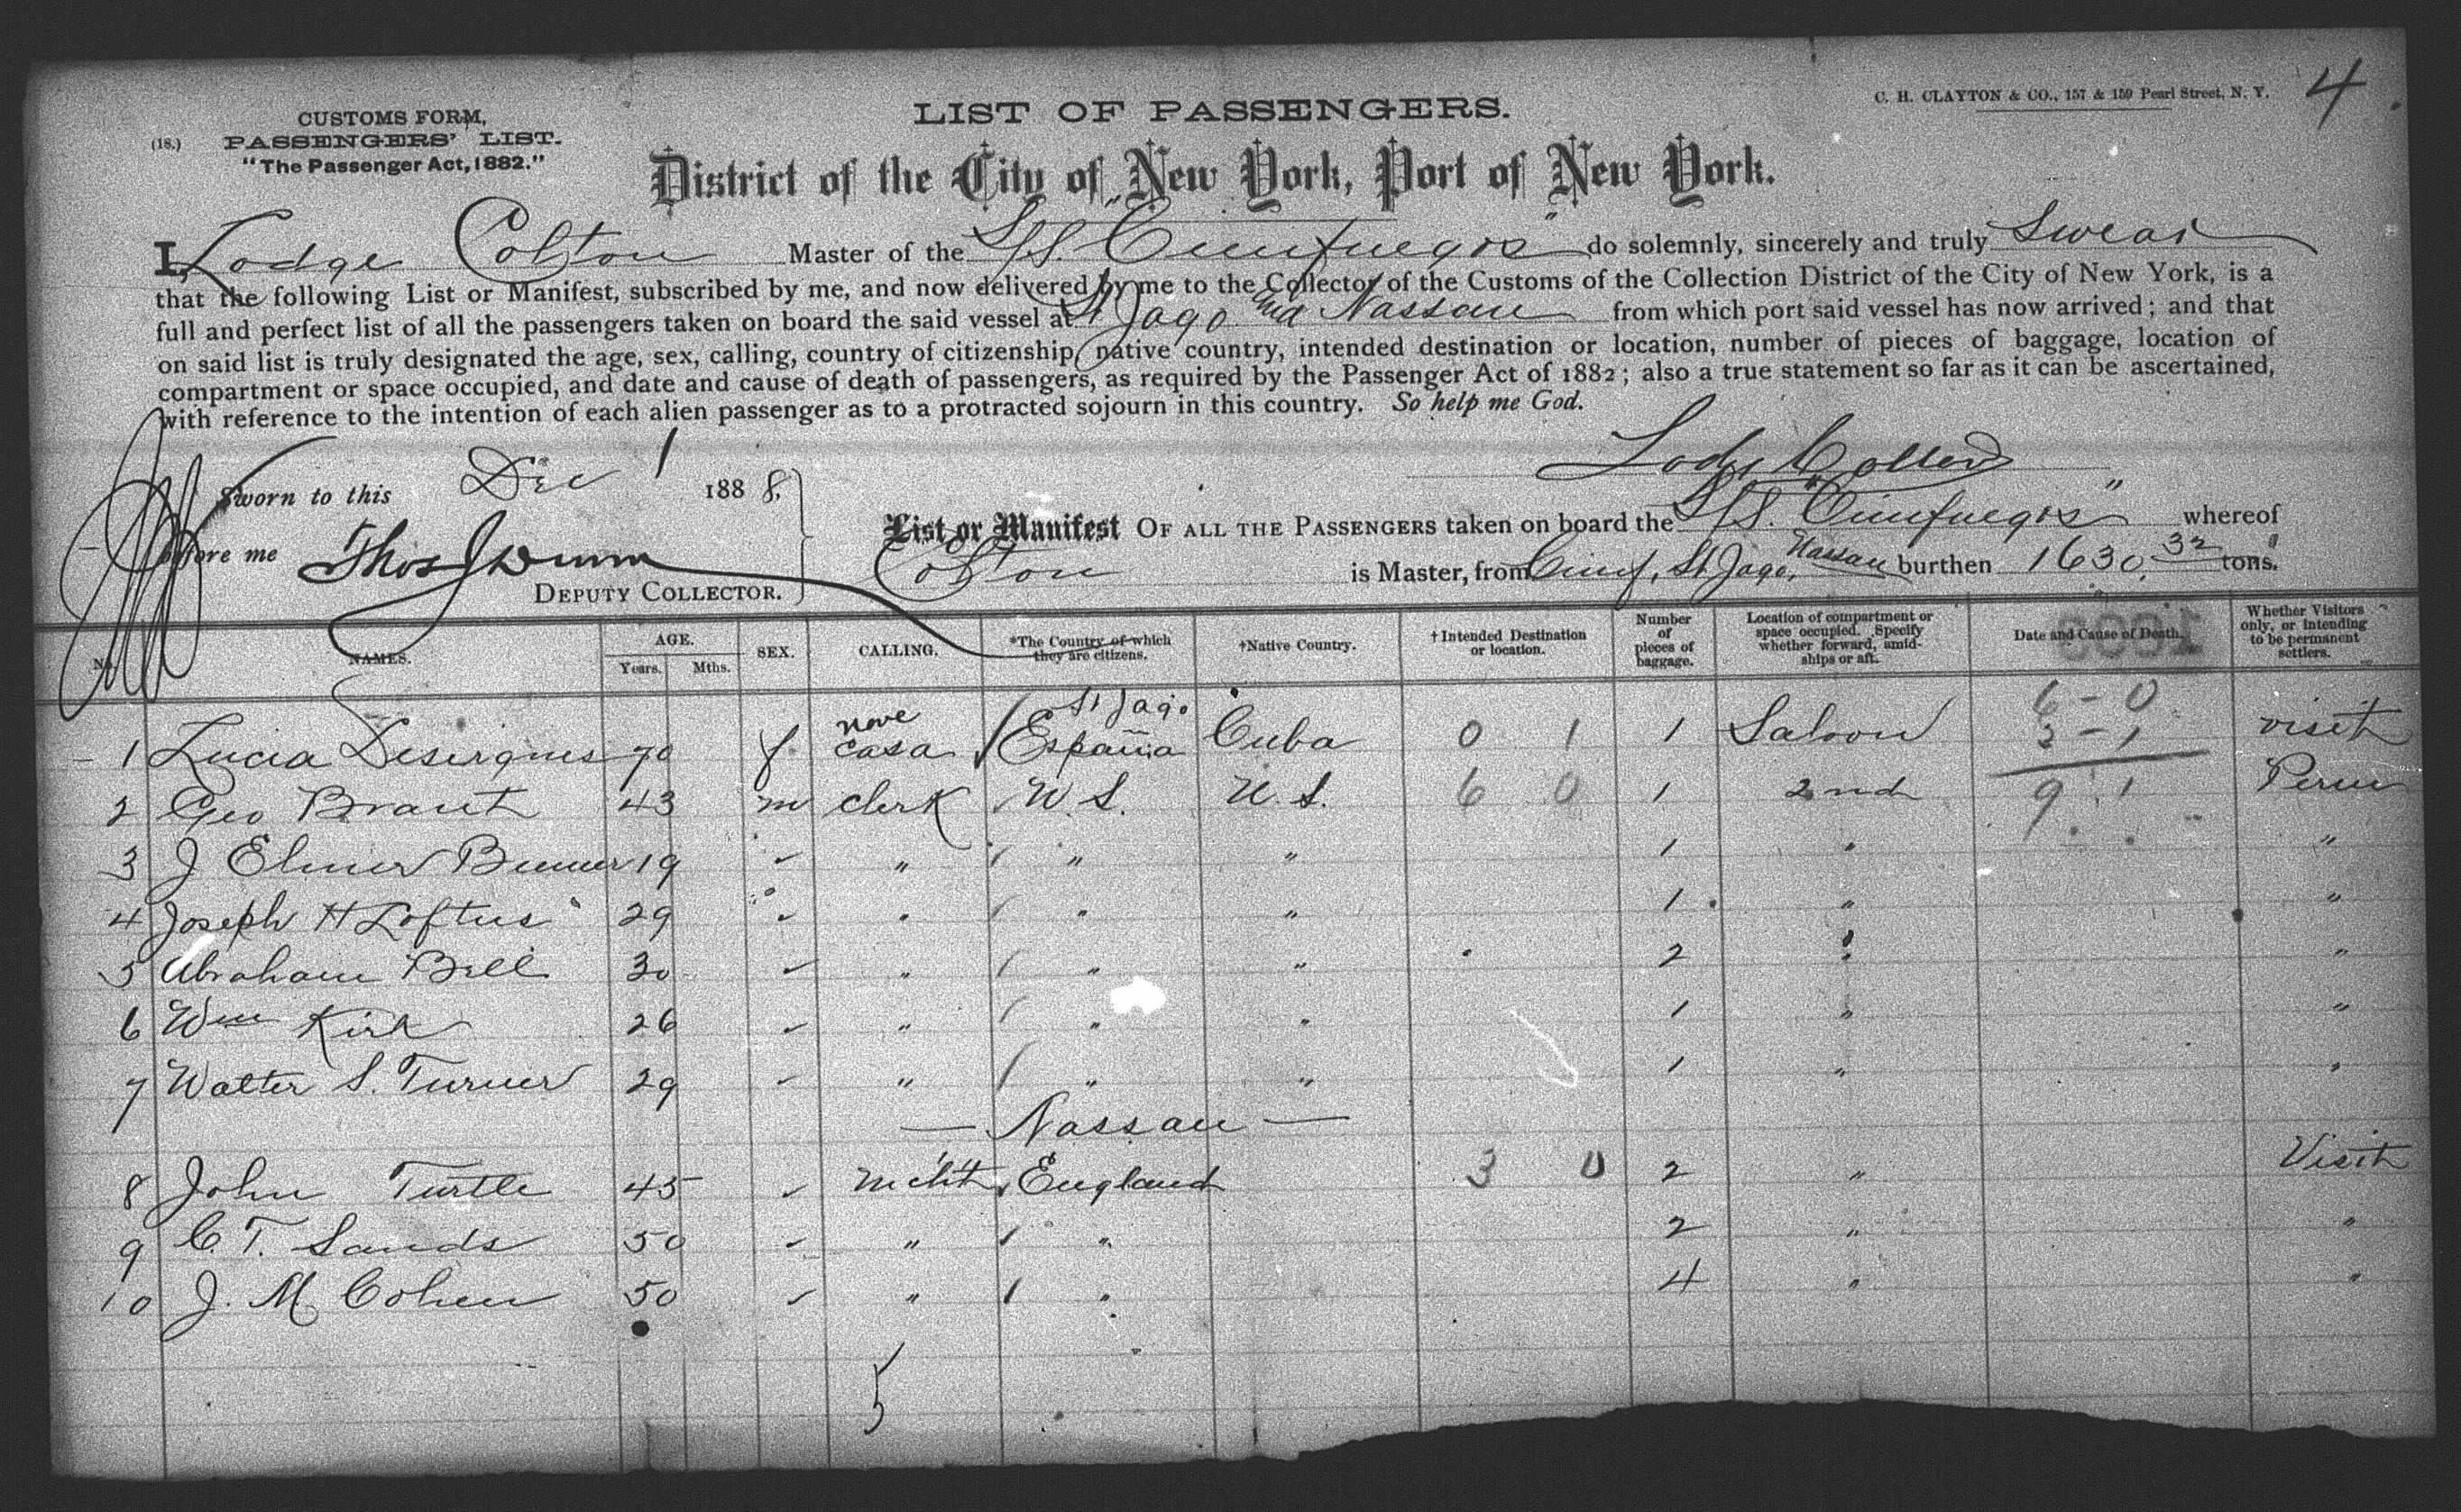 4
C. H. CLAYTON & CO., 157 & 159 Pearl Street, N. Y.
CUSTOMS FORM,
(18.) PASSENGERS' LIST.
"The Passenger Act, 1882."
LIST OF PASSENGERS.
District of the City of New York, Port of New York.
I, Lodge Colton Master of the SS. "Cienfuegos" do solemnly, sincerely and truly swear
that the following List or Manifest, subscribed by me, and now delivered by me to the Collector of the Customs of the Collection District of the City of New York, is a
full and perfect list of all the passengers taken on board the said vessel at St Jago and Nassau from which port said vessel has now arrived; and that
on said list is truly designated the age, sex, calling, country of citizenship, native country, intended destination or location, number of pieces of baggage, location of
compartment or space occupied, and date and cause of death of passengers, as required by the Passenger Act of 1882; also a true statement so far as it can be ascertained,
with reference to the intention of each alien passenger as to a protracted sojourn in this country. So help me God.
Lodge Colton
Sworn to this Dec 1 1888.
before me Thos J Dunn
DEPUTY COLLECTOR.
List or Manifest OF ALL THE PASSENGERS taken on board the SS. "Cienfuegos" whereof
Colton is Master, from Cienf, St Jago, Nassau burthen 1630 32 tons.
No. NAMES. AGE. Years. Mths. SEX. CALLING. *The Country of which they are citizens. †Native Country. †Intended Destination or location. Number of pieces of baggage. Location of compartment or space occupied. Specify whether forward, amidships or aft. Date and Cause of Death. Whether Visitors only, or intending to be permanent settlers.
St Jago
6 - 0
1 Lucia 70 f. none casa España Cuba 0 1 1 Saloon 3 - 1 visit
2 Geo Brant 43 m clerk U. S. U. S. 6 0 1 2nd 9 . 1 Perm
3 J Elmer 19 " " " 1 " "
4 Joseph H Loftus 29 " " " 1 " "
5 Abraham Bell 30 " " " 2 " "
6 Wm Kirk 26 " " " 1 " "
7 Walter S. Turner 29 " " " 1 " "
— Nassau —
8 John Turtle 45 mcht England 3 0 2 " Visit
9 C. T. Sands 50 " " 2 " "
10 J. M Cohen 50 " " 4 " "
5